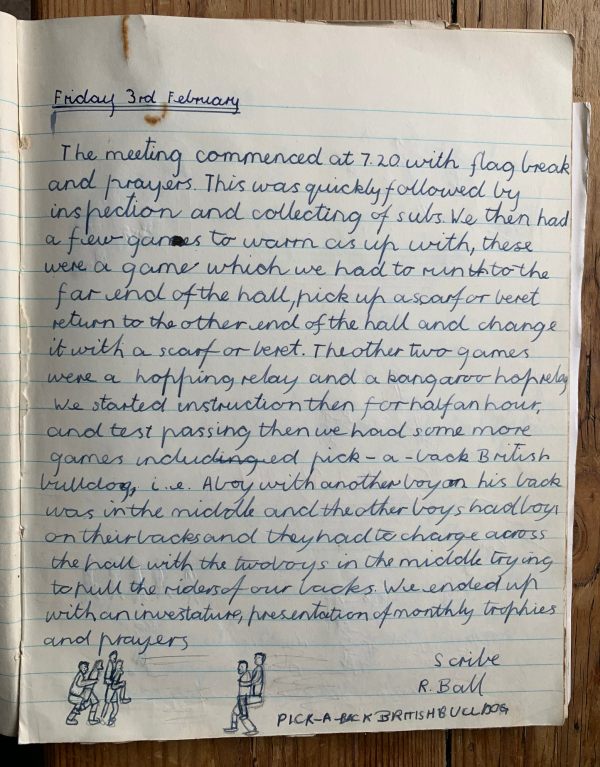 Friday 3rd February
The meeting commenced at 7.20 with flag break
and prayers. This was quickly followed by
inspection and collecting of subs. We then had
a few games to warm as up with, these
were a game which we had to run to the
far end of the hall, pick up a scarf or beret
return to the other end of the hall and change
it with a scarf or beret. The other two games
were a hopping relay and a kangaroo hop relay
We started instruction then for half an hour,
and test passing then we had some more
games included pick-a-back British
bulldog, i.e. A boy with another boy on his back
was in the middle and the other boys had boys
on their backs and they had to charge across
the hall with the two boys in the middle trying
to pull the riders of our backs. We ended up
with an investature, presentation of monthly trophies
and prayers
Scribe
R. Ball
PICK-A-BACK BRITISH BULLDOG